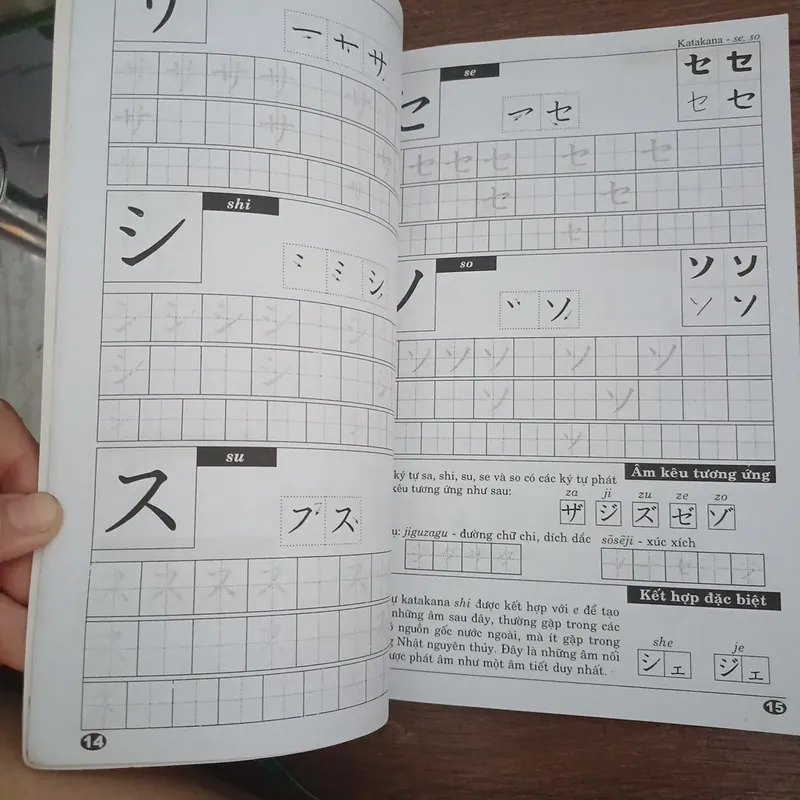 サ
一 十 サ
サ サ サ サ サ サ
サ サ サ
サ
shi
シ
シ
シ シ シ シ シ
シ シ シ
シ
su
ス
フ ス
ス ス ス ス ス ス
ス ス
14
Katakana - se, so
se
セ
セ
セ セ
セ セ
セ セ セ セ セ
セ セ
セ
so
ソ
ソ
ソ ソ
ソ ソ
ソ ソ ソ ソ ソ
ソ ソ
ソ
Âm kêu tương ứng
ký tự sa, shi, su, se và so có các ký tự phát
kêu tương ứng như sau:
za ji zu ze zo
ザ ジ ズ ゼ ゾ
jiguzagu - đường chữ chi, dích dắc
sōsēji - xúc xích
Kết hợp đặc biệt
katakana shi được kết hợp với e để tạo
những âm sau đây, thường gặp trong các
nguồn gốc nước ngoài, mà ít gặp trong
Nhật nguyên thủy. Đây là những âm nối
được phát âm như một âm tiết duy nhất.
she je
シェ ジェ
15